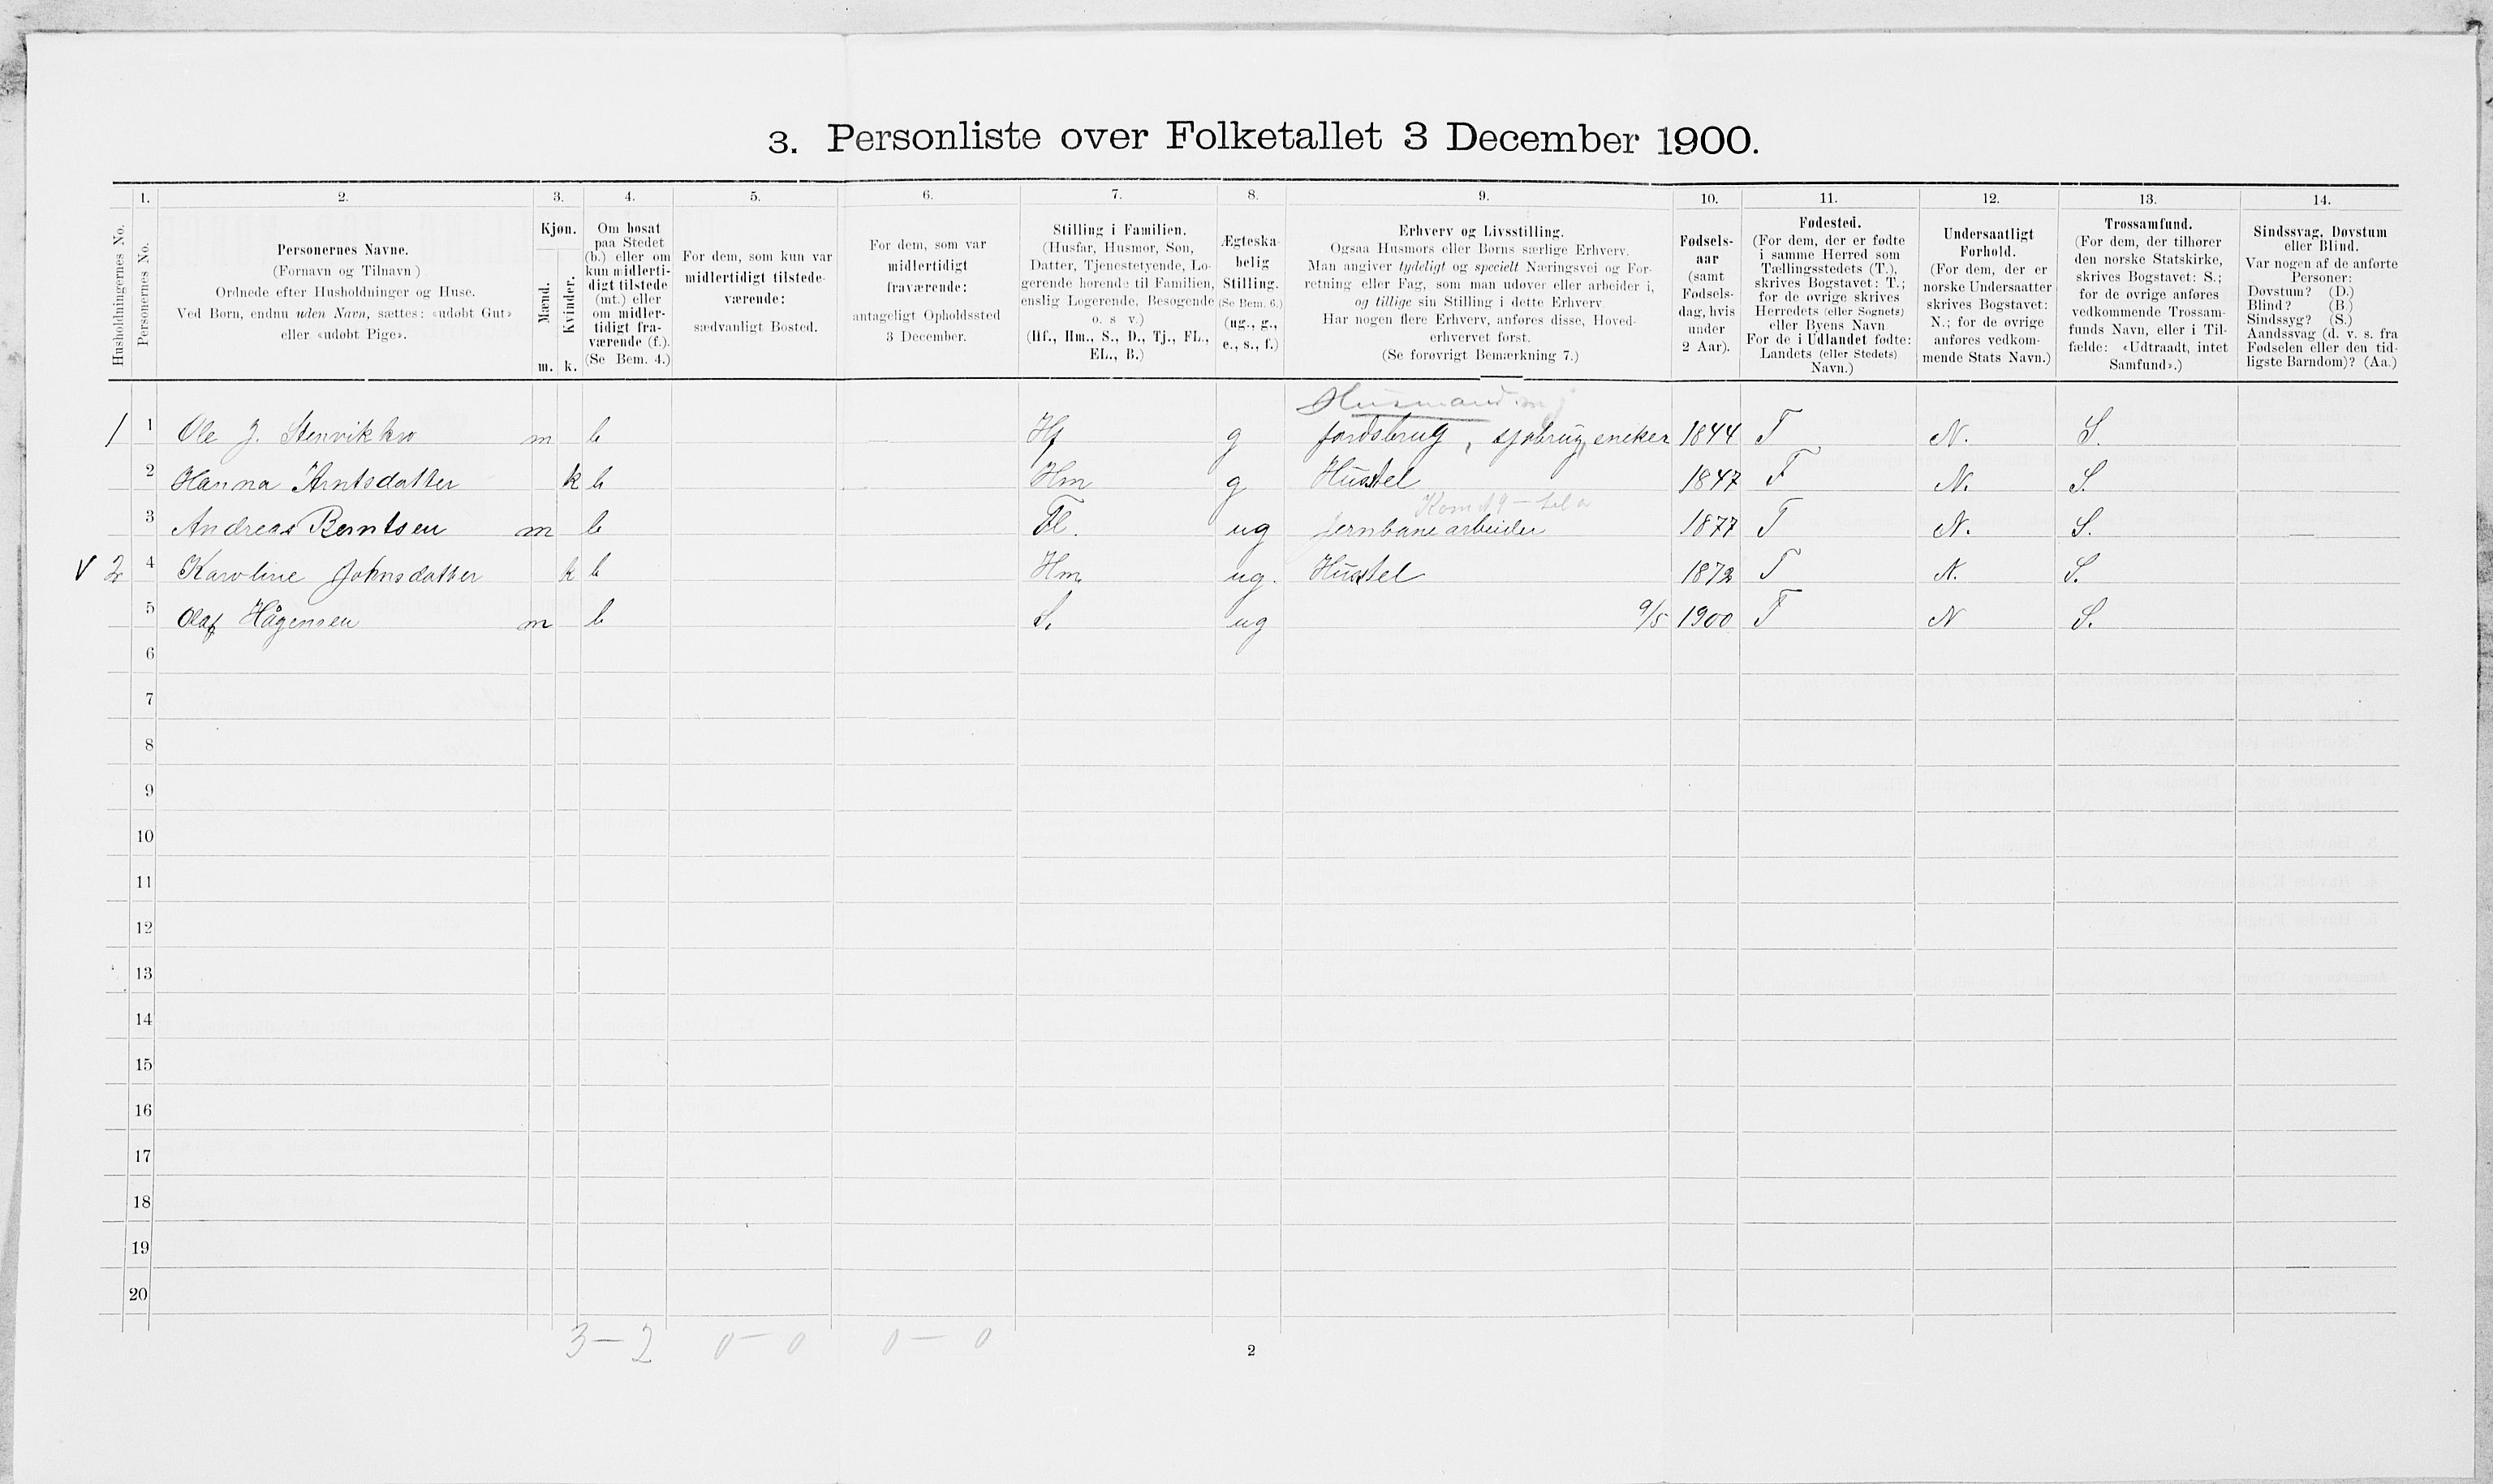 3. Personliste over Folketallet 3 December 1900.
Husholdningernes No.
1.
Personernes No.
2.
Personernes Navne.
(Fornavn og Tilnavn)
Ordnede efter Husholdninger og Huse.
Ved Børn, endnu uden Navn, sættes: «udøbt Gut»
eller «udøbt Pige».
3.
Kjøn.
Mænd.
Kvinder.
m. k.
4.
Om bosat
paa Stedet
(b.) eller om
kun midlerti-
digt tilstede
(mt.) eller
om midler-
tidigt fra-
værende (f.).
(Se Bem. 4.)
5.
For dem, som kun var
midlertidigt tilstede-
værende:
sædvanligt Bosted.
6.
For dem, som var
midlertidigt
fraværende:
antageligt Opholdssted
3 December.
7.
Stilling i Familien.
(Husfar, Husmor, Søn,
Datter, Tjenestetyende, Lo-
gerende hørende til Familien,
enslig Logerende, Besøgende
o. s v.)
(Hf., Hm., S., D., Tj., FL.,
EL., B.)
8.
Ægteska-
belig
Stilling.
(Se Bem. 6.)
(ug., g.,
e., s., f.)
9.
Erhverv og Livsstilling.
Ogsaa Husmors eller Børns særlige Erhverv.
Man angiver tydeligt og specielt Næringsvei og For-
retning eller Fag, som man udøver eller arbeider i,
og tillige sin Stilling i dette Erhverv.
Har nogen flere Erhverv, anføres disse, Hoved-
erhvervet først.
(Se forøvrigt Bemærkning 7.)
10.
Fødsels-
aar
(samt
Fødsels-
dag, hvis
under
2 Aar).
11.
Fødested.
(For dem, der er fødte
i samme Herred som
Tællingsstedets (T.),
skrives Bogstavet: T.;
for de øvrige skrives
Herredets (eller Sognets)
eller Byens Navn
For de i Udlandet fødte:
Landets (eller Stedets)
Navn.)
12.
Undersaatligt
Forhold.
(For dem, der er
norske Undersaatter
skrives Bogstavet:
N.; for de øvrige
anføres vedkom-
mende Stats Navn.)
13.
Trossamfund.
(For dem, der tilhører
den norske Statskirke,
skrives Bogstavet: S.;
for de øvrige anføres
vedkommende Trossam-
funds Navn, eller i Til-
fælde: «Udtraadt, intet
Samfund».)
14.
Sindssvag, Døvstum
eller Blind.
Var nogen af de anførte
Personer:
Døvstum? (D.)
Blind? (B.)
Sindssyg? (S.)
Aandssvag (d. v. s. fra
Fødselen eller den tid-
ligste Barndom)? (Aa.)
Husmand m j
1 1 Ole J. Stenvik m b Hf g jordsbrug, sjøbrug, 1844 T N. S.
2 Hanna Arntsdatter k b Hm g Husstel 1847 T N. S.
3 Andreas Berntsen m b Fl. ug jernbanearbeider 1877 T N. S.
v 2 4 Karoline Johnsdatter k b Hm ug. Husstel 1872 T N. S.
5 Olaf Hågensen m b S. ug 9/5 1900 T N S.
6
7
8
9
10
11
12
13
14
15
16
17
18
19
20
3 — 2 0 — 0 0 — 0
2